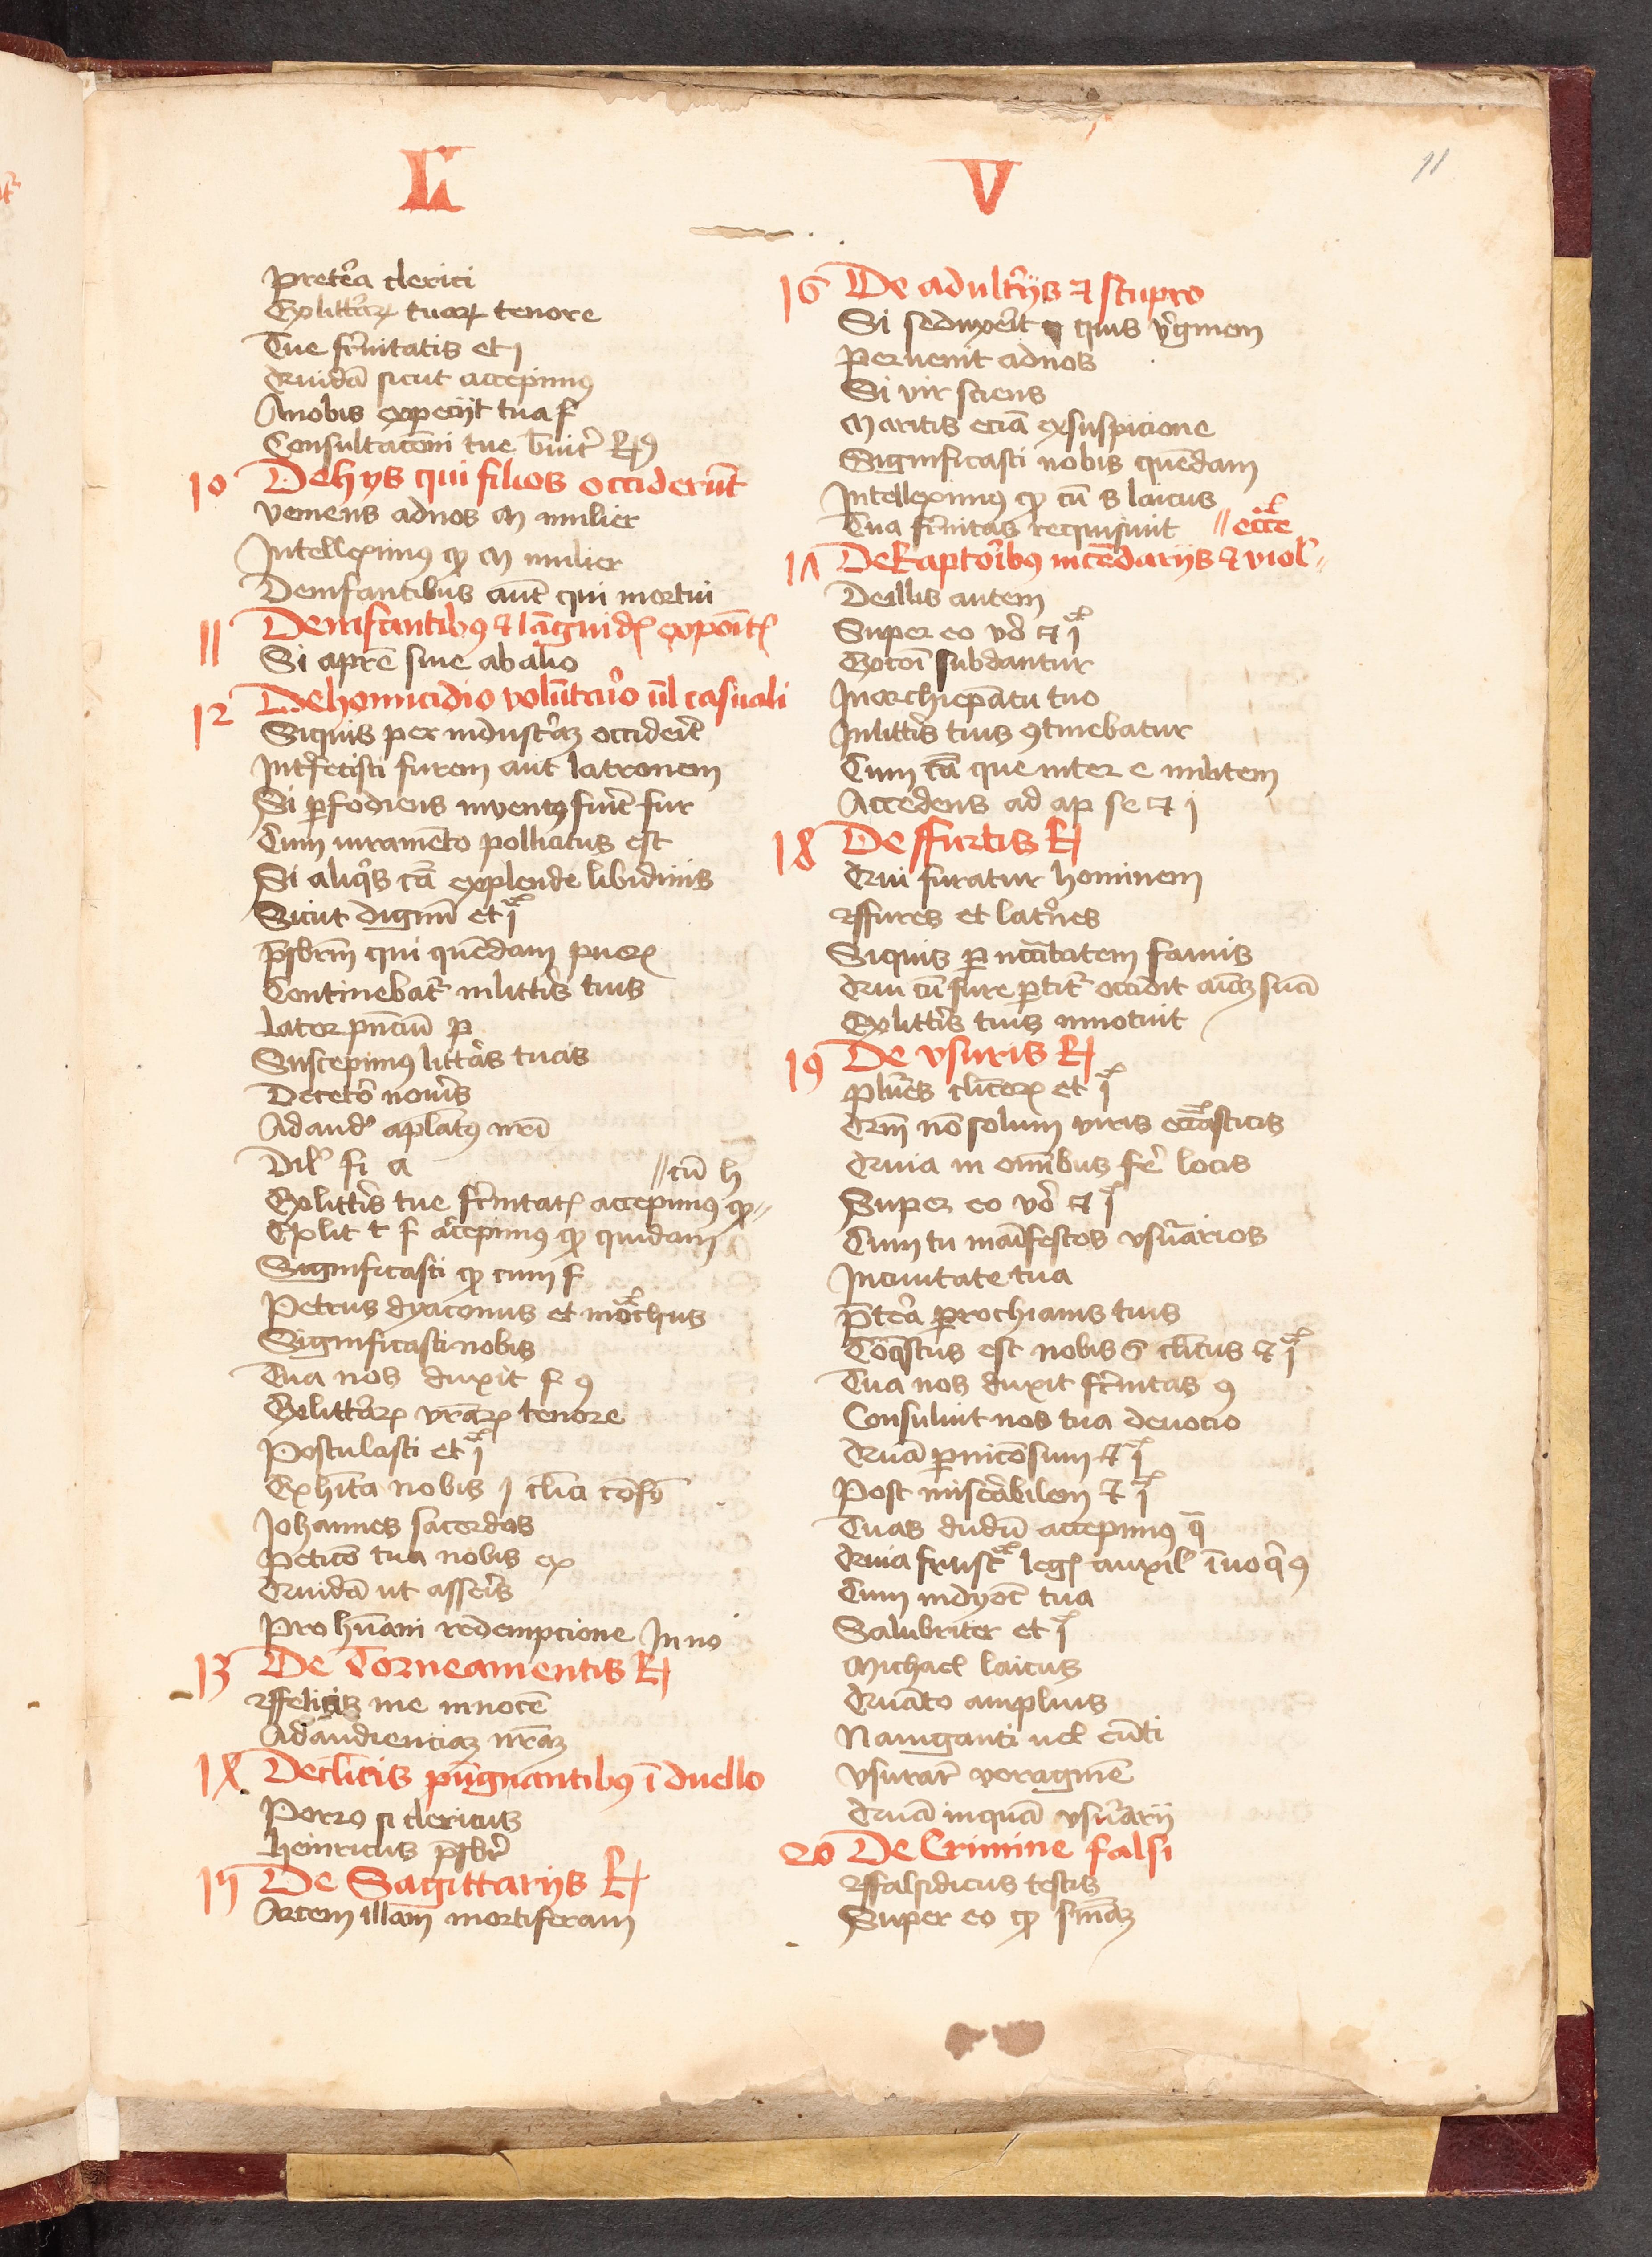 L V
11
Pretera clerici
Exlitterarum tuarum tenore
Tue fr̄nitatis et i
Quidā sicut accepimus
Anobis expeciit tua f
Consultacōni tue
10 De hys qui filios occiderūt
Veniens adnos M mulier
Intelleximus quod M mulier
Deinfantibus aūt qui mortui
11 Deinfantibus et lāguidis expoītis
Si apr̄e siue ab alio
12 De homicidio volūtario ūl casuali
Siquis per industriam occiderit
Interfecisti furem aut latronem
Si perfodiens inventus fuerit fur
Cum iuramēto pollicitus est
Si aliquis cā explende libidinis
Sicut dignū et i
Prēsbrm qui quēdam puerum
Continebatur inlitteris tuis
Lator pn̄ciū p
Suscepimus litteras tuas
De cetero noueris
Adaud aplatus nr̄i
Dil fi a // cū h
Exlitteris tue fr̄nitatis accepimus quod
Exlit t f accepimus quod quidam
Significasti quod cum f
Petrus dyaconus et monachus
Significasti nobis
Tua nos duxit f 9
Exlitterarum vr̄arum tenore
Postulasti et i
Exhīta nobis J clīci
Johannes sacerdos
Peticō tua nobis ex
Quidā ut asseris
Pro hūani redempcione Inno
13 De Torneamentis R
Felicis me innocē
Adaudienciam nr̄am
14 De clīcis pūgnantibus ī duello
Porro si clericus
Heinricus prēsbr
15 De Sagittariis R
Artem illam mortiferam
16 De adulteriis et stupro
Si seduxerit quis virginem
Peruenit adnos
Si vir sciens
Maritis eciā exsuspicione
Significasti nobis quēdam
Intelleximus quod cū s laicus
Tua fr̄nitas requisiuit // eccē
17 De Raptoribus incēdariis et viol
Deillis autem
Super eo vero et i
Excōi subdantur
Inarchiepatu tuo
Inlitteris tuis 9tinebatur
Cum cā que inter e militem
Accedens ad ap se et i
18 De ffurtis R
Qui furatur hominem
ffures et latrones
Siquis p necītatem famis
Qui cū fure partitur occidit aīam suā
Exlitteris tuis innotuit
19 De vsuris R
Plures clīcorum et i
Qm̄ nō solum viris eccāsticis
Quia in omībus fere locis
Super eo vero et i
Cum tu māifestos vsurarios
Inciuitate tua
Pretera parrochianis tuis
Cōquestus est nobis G clīcus et i
Tua nos duxit fr̄nitas 9
Consuluit nos tua deuocio
Quā perniciosum et i
Post miserabilem et i
Tuas dudū accepimus q
Quia frustra legis auxil īuoq 9
Cum indyoc tua
Salubriter et i
Michael laicus
Quāto amplius
Nauiganti uel eūti
Vsurar voraginē
Quā inquā vsurarii
20 De Crimine falsi
ffalsidicus testis
Super eo quod